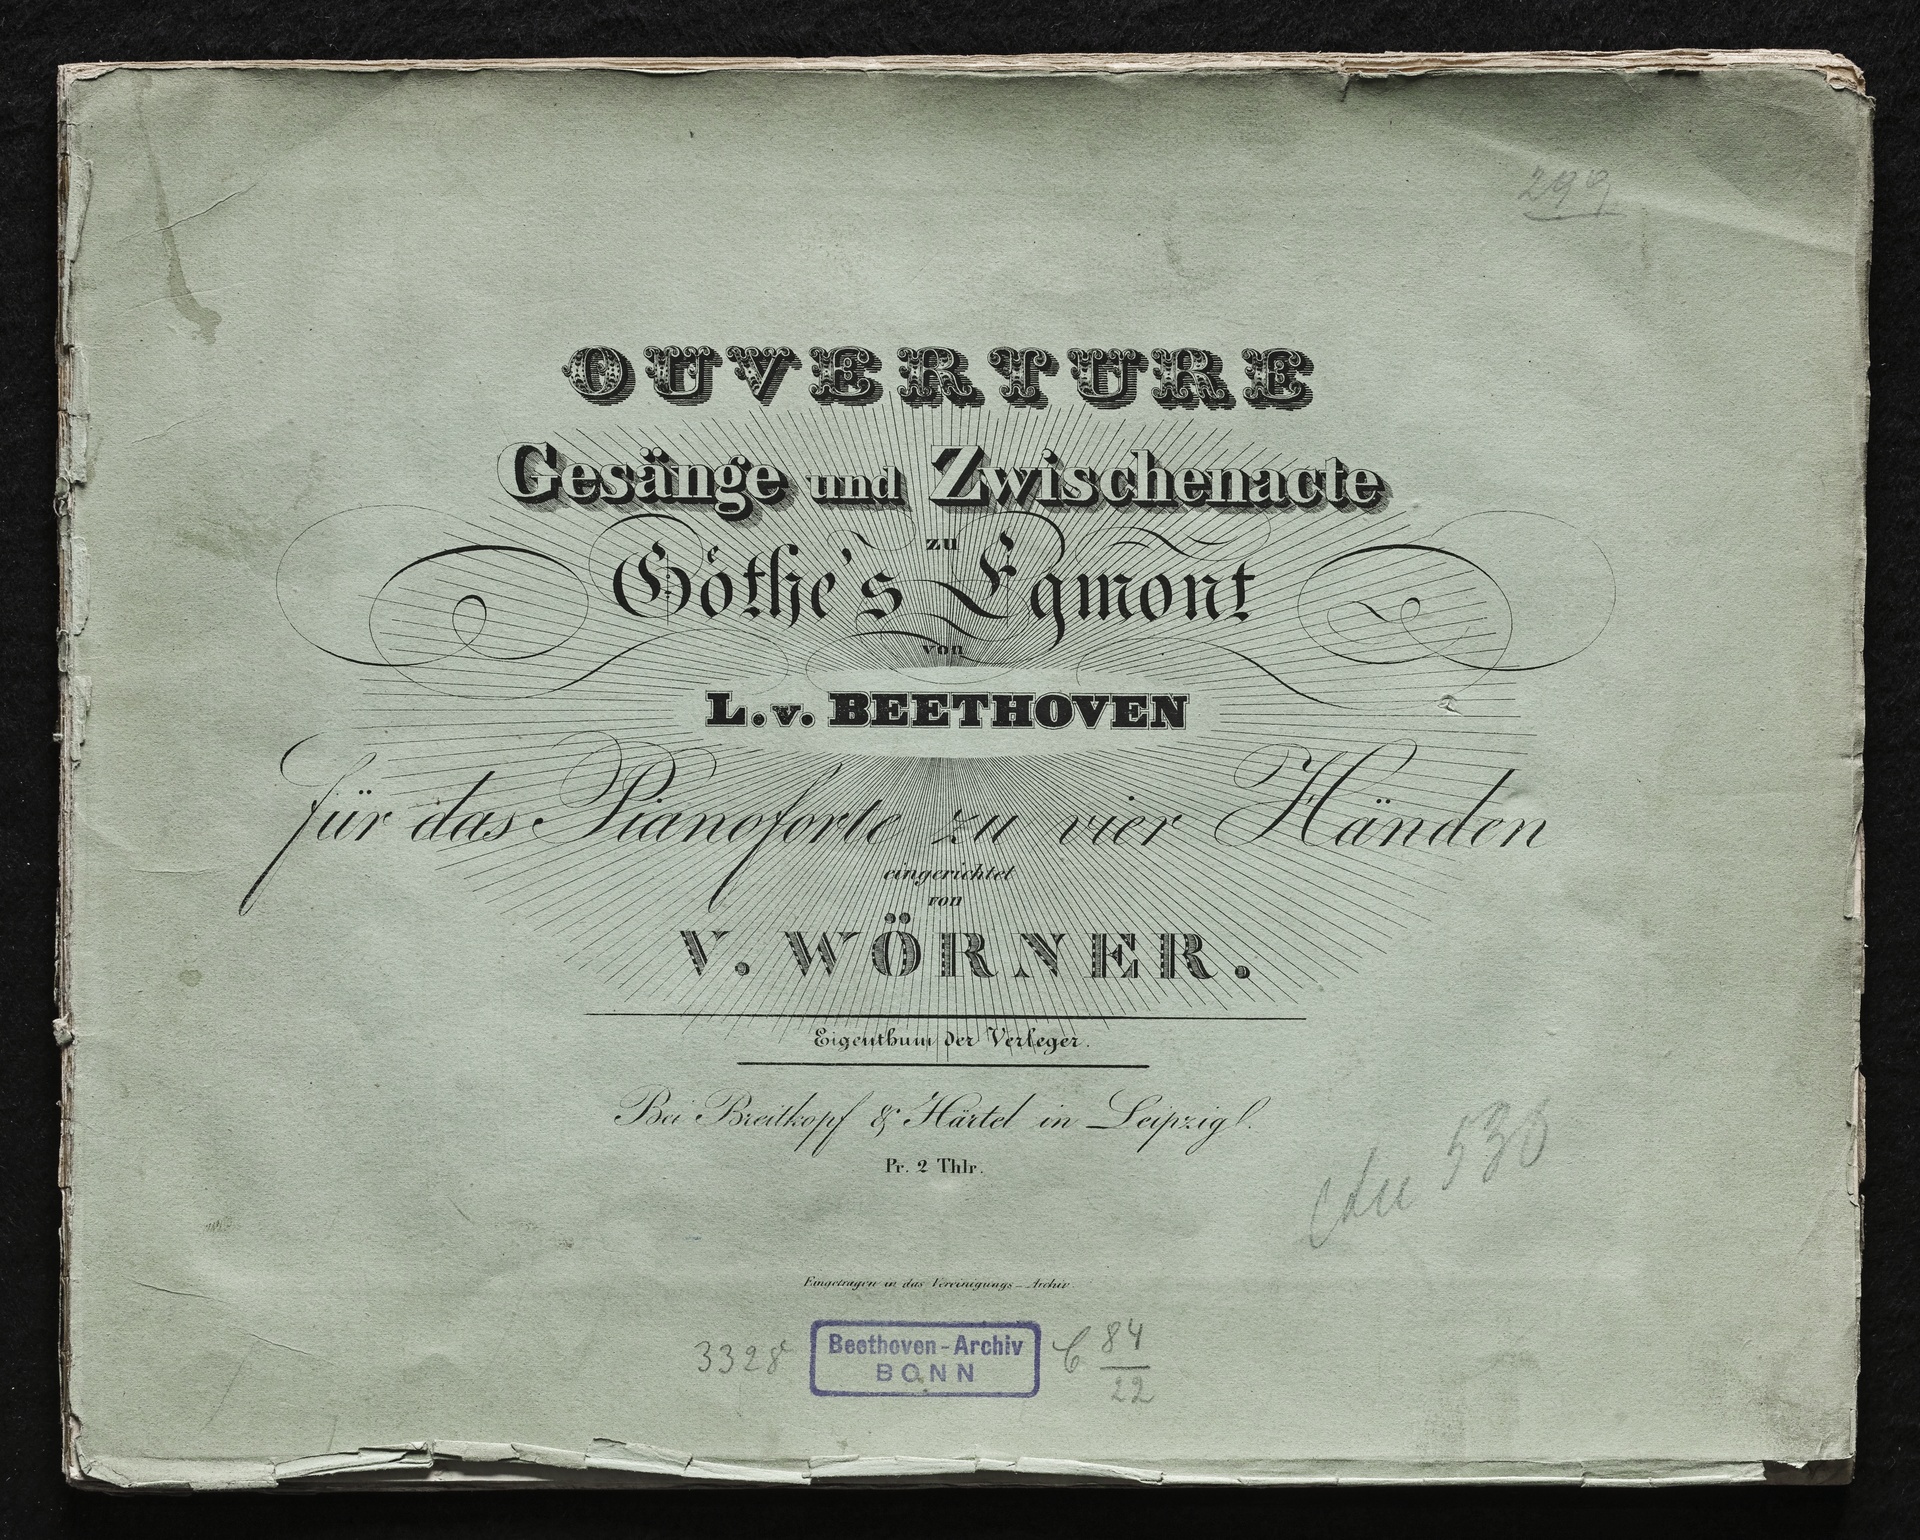 299
OUVERTURE
Gesänge und Zwischenacte
zu
Göthe's Egmont
von
L. v. BEETHOVEN
für das Pianoforte zu vier Händen
eingerichtet
von
V. WÖRNER.
Eigenthum der Verleger.
Bei Breitkopf & Härtel in Leipzig.
Pr. 2 Thlr.
530
Eingetragen in das Vereinigungs-Archiv.
3328
Beethoven-Archiv
BONN
C 84
22